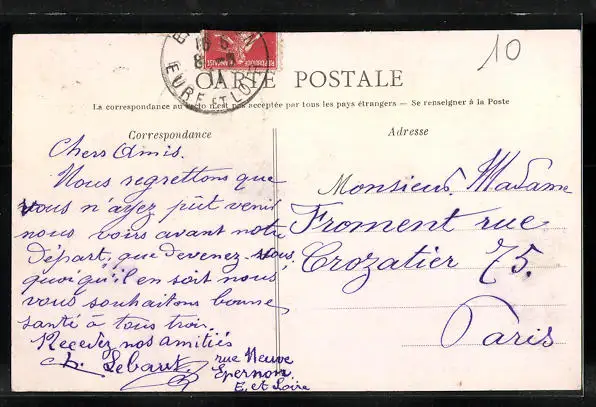 10
EURE ET LOIR
REPUBLIQUE FRANÇAISE
CARTE POSTALE
La correspondance au recto n'est pas acceptée par tous les pays étrangers — Se renseigner à la Poste
Correspondance
Adresse
Chers Amis.
Nous regrettons que
vous n'ayez pût venir
nous voirs avant notre
Départ, que devenez-vous;
quoiqu'il en soit nous
vous souhaitons bonne
santé à tous trois.
Recevez nos amitiés
Ch. Lebaut
rue Neuve
Epernon
E. et Loire
Monsieur Madame
Froment rue
Crozatier 75.
Paris